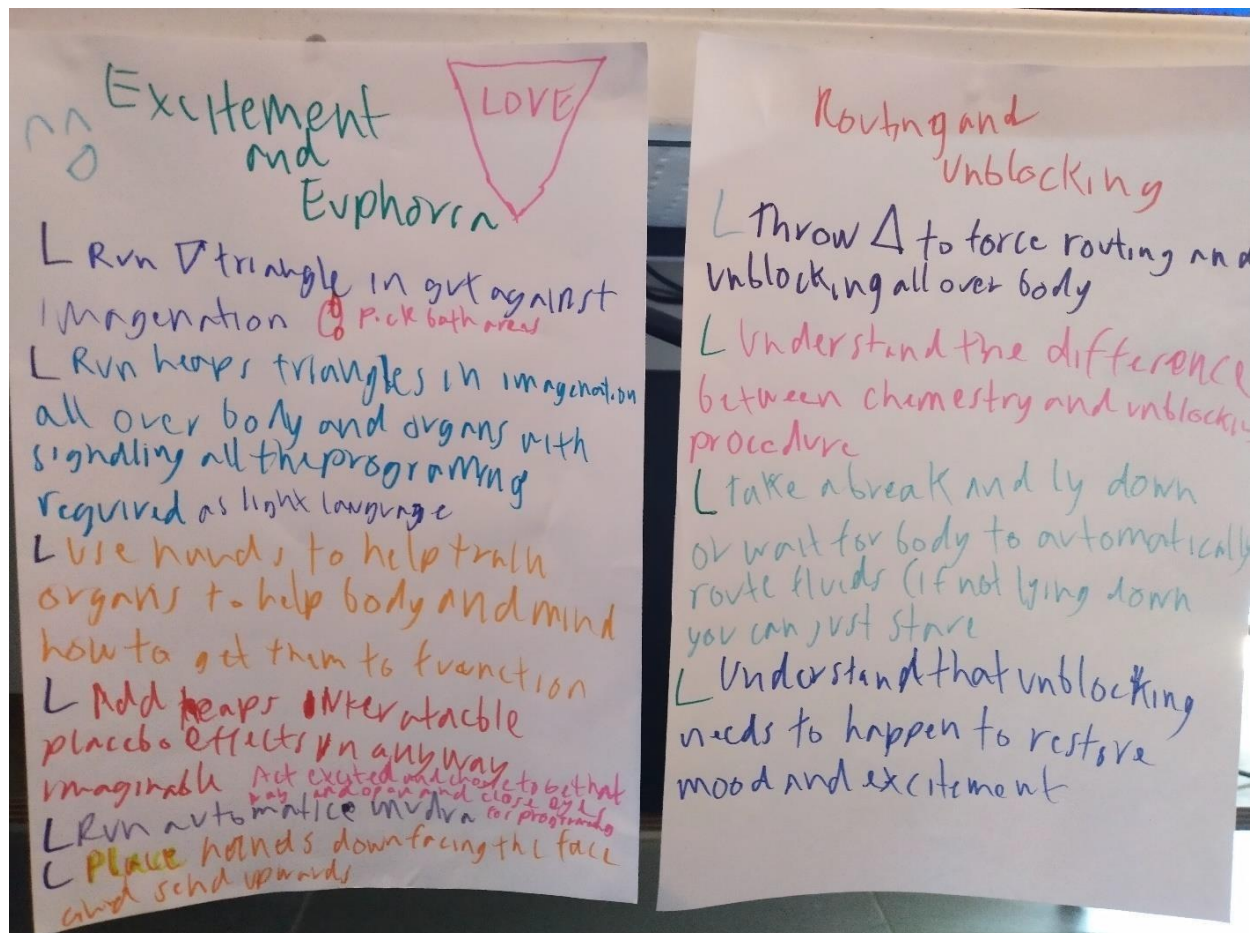 Excitement
and
Euphoria
LOVE
Run ∇ triangle in gut against
imagenation Pick both areas
Run heaps triangles in imagenation
all over body and organs with
signalling all the programing
required as light language
use hands to help train
organs to help body and mind
how to get them to function
Add heaps
placebo effects in anyway
imaginable Act excited and chose to be that
way and open and close eye
Run automatice mudra for programing
Place hands down facing the face
and send upwards
Routing and
Unblocking
Throw Δ to force routing and
unblocking all over body
Understand the difference
between chemestry and
procedure
take a break and ly down
or wait for body to automatically
route fluids (if not lying down
you can just stare
Understand that unblocking
needs to happen to restore
mood and excitement